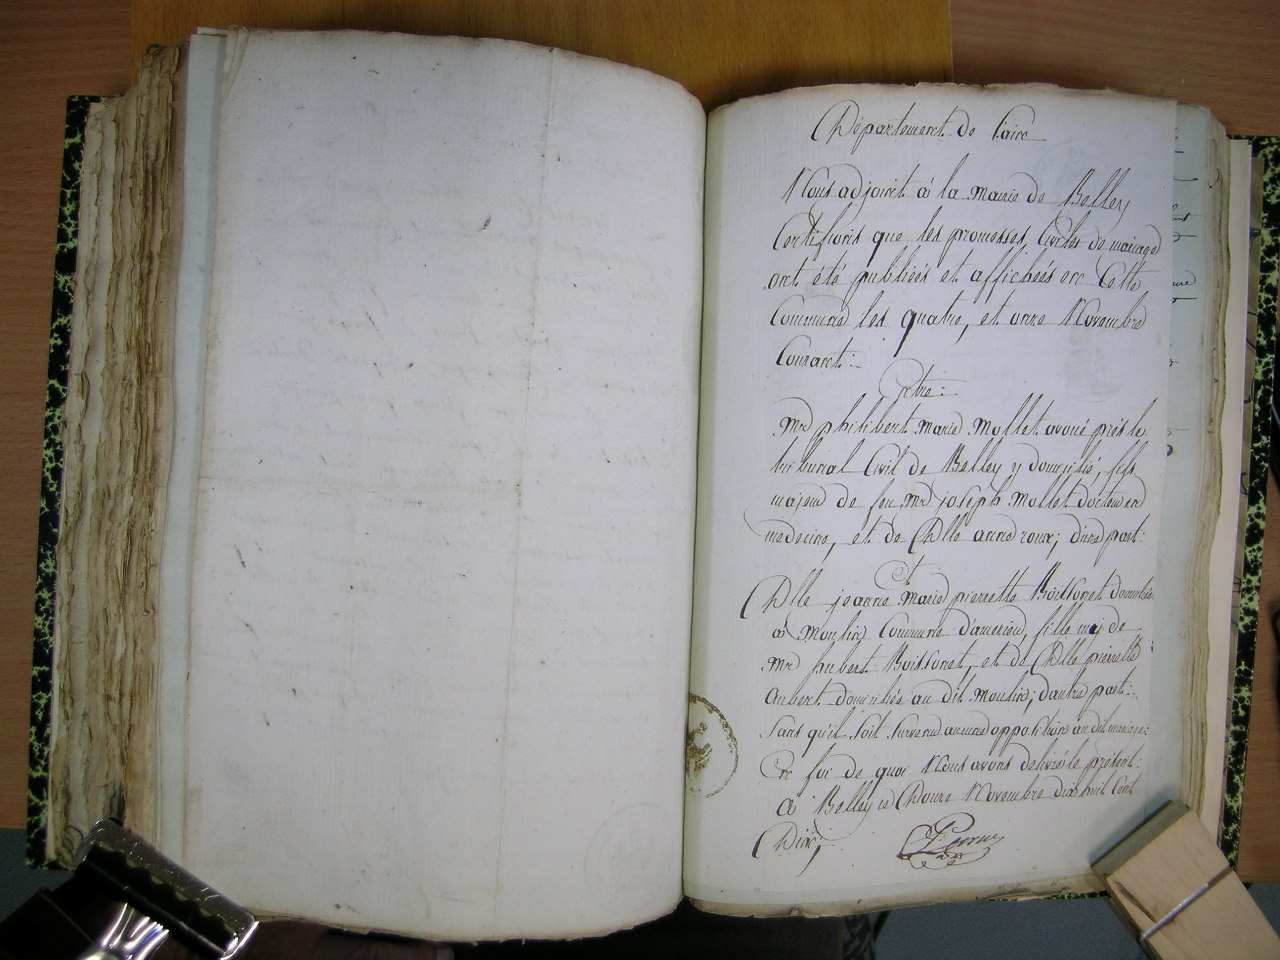 Département de l'ain
Nous adjoint à la mairie de Belley
Certifions que les promesses Civiles de mariage
ont été publiées et affichées en Cette
Commune les quatre, et onze Novembre
Courant:
Entre:
Mr philibert Marie Mollet avoué près le
tribunal Civil de Belley y domicilié, fils
majeur de feu Mr joseph Mollet docteur en
medecine, et de Dlle anne roux; d'une part:
Et
Dlle jeanne Marie pierrette Boissonet domiciliée
à Moulin Commune d'amerieu, fille de
Mr hubert Boissonet, et de Dlle pierrette
aubert domiciliés au dit Moulin; d'autre part:
Sans qu'il soit survenu aucune opposition au dit mariage:
En foi de quoi Nous avons délivré le présent:
à Belley ce Douze Novembre dix huit Cent
Dix;